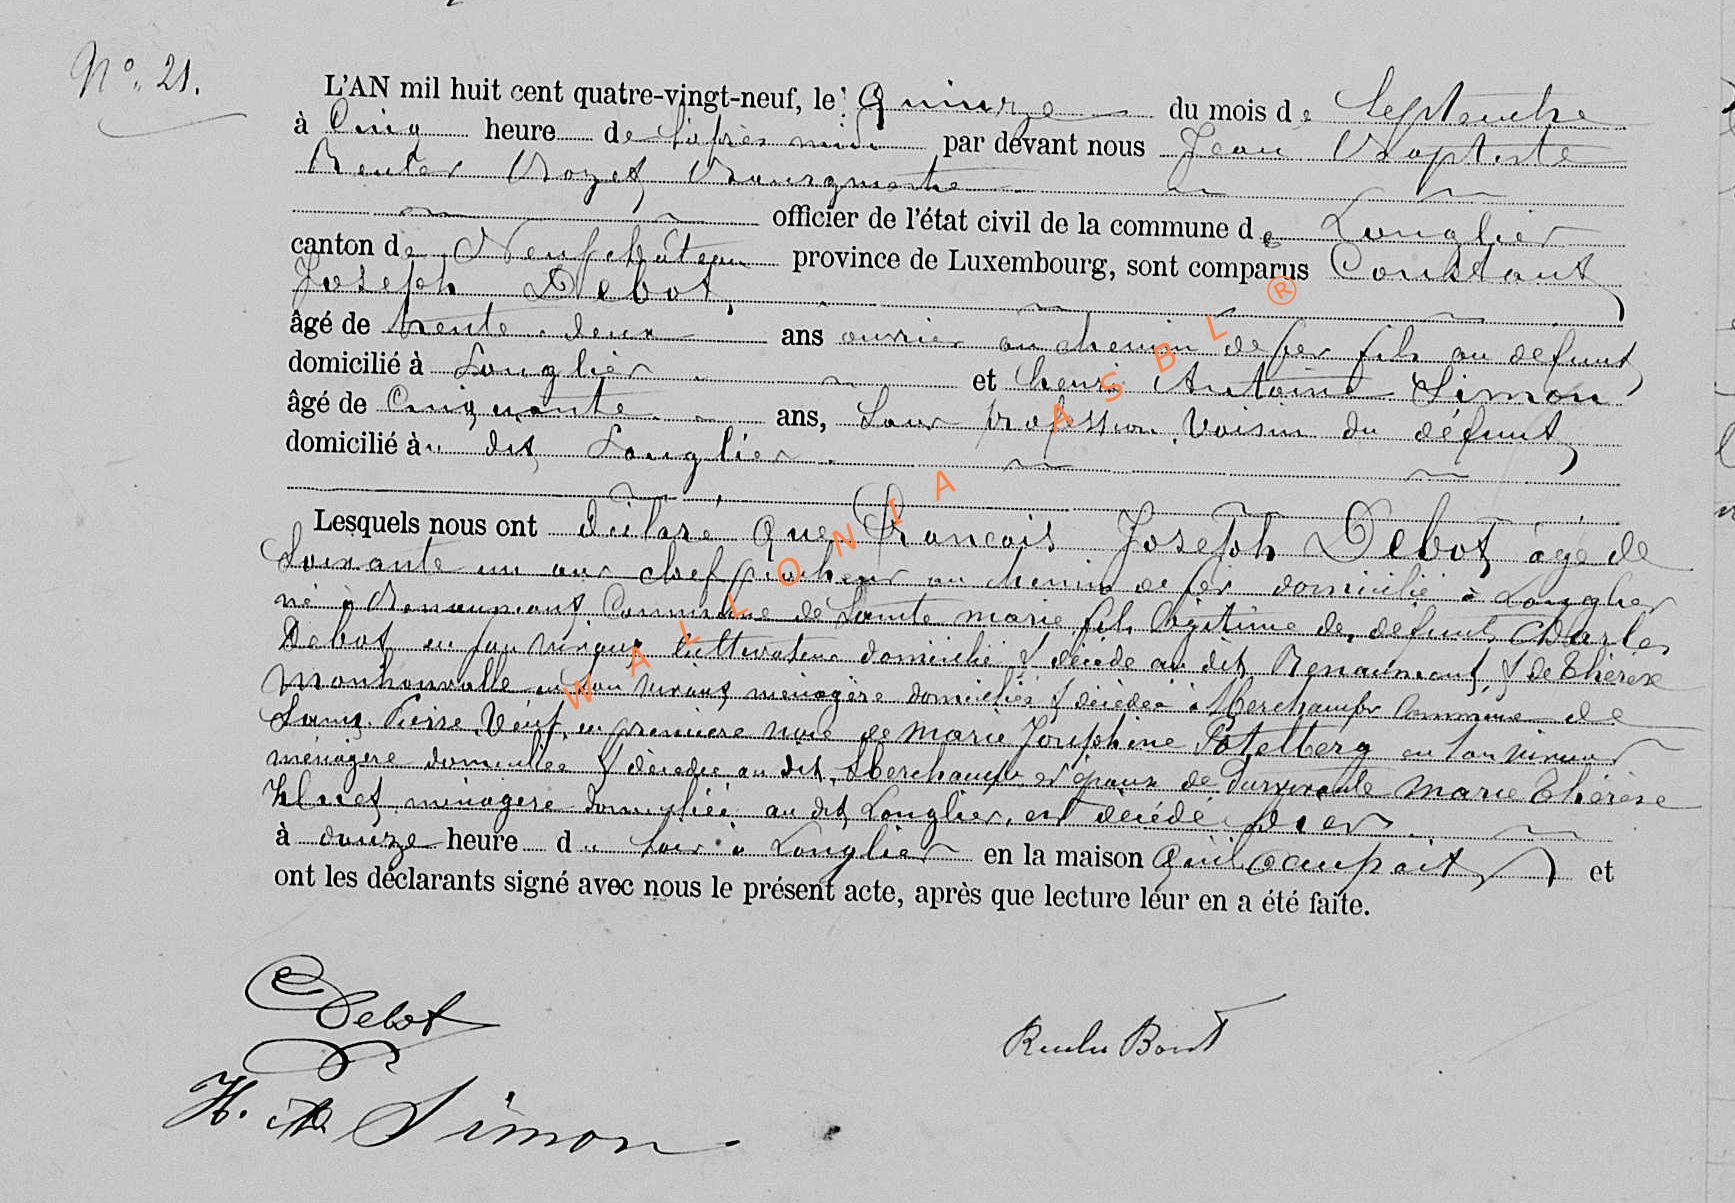 N°. 21.
L'AN mil huit cent quatre-vingt-neuf, le Quinze du mois de Septembre
à Cinq heure de l'après midi par devant nous Jean Baptiste
Reuter Bozet, Bourgmestre
officier de l'état civil de la commune de Longlier
canton de Neufchâteau province de Luxembourg, sont comparus Constant
Joseph Debot,
âgé de trente-deux ans ouvrier au chemin de fer fils au defunt
domicilié à Longlier et henri Antoine Simon
âgé de Cinquante ans, Sans profession, Voisin du défunt
domicilié au dit Longlier
Lesquels nous ont déclaré que François Joseph Debot, âgé de
Soixante un ans chef piocheur au chemin de fer domicilié à Longlier
né à Renaumont Commune de Sainte marie fils légitime de defunts Charles
Debot, en son vivant Cultivateur domicilié & décédé au dit Renaumont, & de Thérèse
en son vivant ménagère domiciliée & décédée à Sberchamps Commune de
Saint-Pierre, Veuf, en première noce de Marie Joséphine en son vivant
ménagère domiciliée & décédée au dit Sberchamps et époux de Survivante Marie Thérèse
ménagère domiciliée au dit Longlier, est décédé hier
à onze heure du soir à Longlier en la maison qu'il occupait et
ont les déclarants signé avec nous le présent acte, après que lecture leur en a été faite.
C Debot
H. A. Simon
WALLONIA ASBL ®